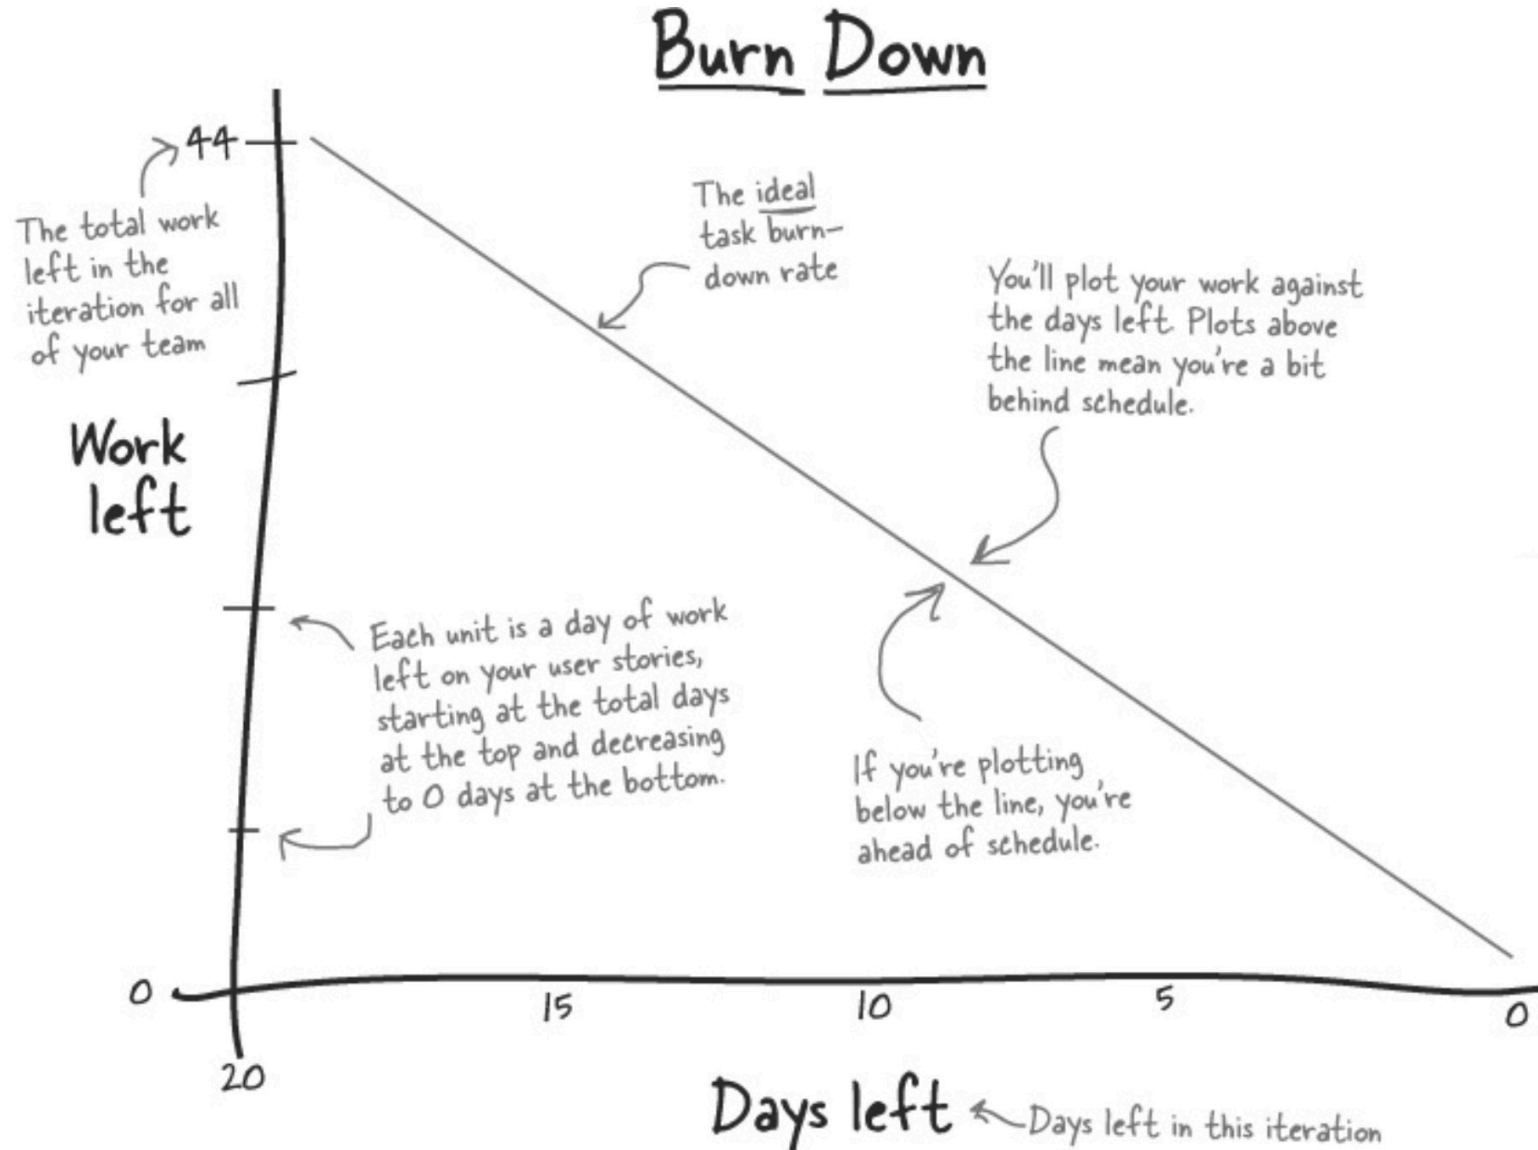 Burn Down
44
The total work
left in the
iteration for all
of your team
The ideal
task burn-
down rate
You'll plot your work against
the days left. Plots above
the line mean you're a bit
behind schedule.
Work
left
Each unit is a day of work
left on your user stories,
starting at the total days
at the top and decreasing
to 0 days at the bottom.
If you're plotting
below the line, you're
ahead of schedule.
0
20
15
10
5
0
Days left
Days left in this iteration